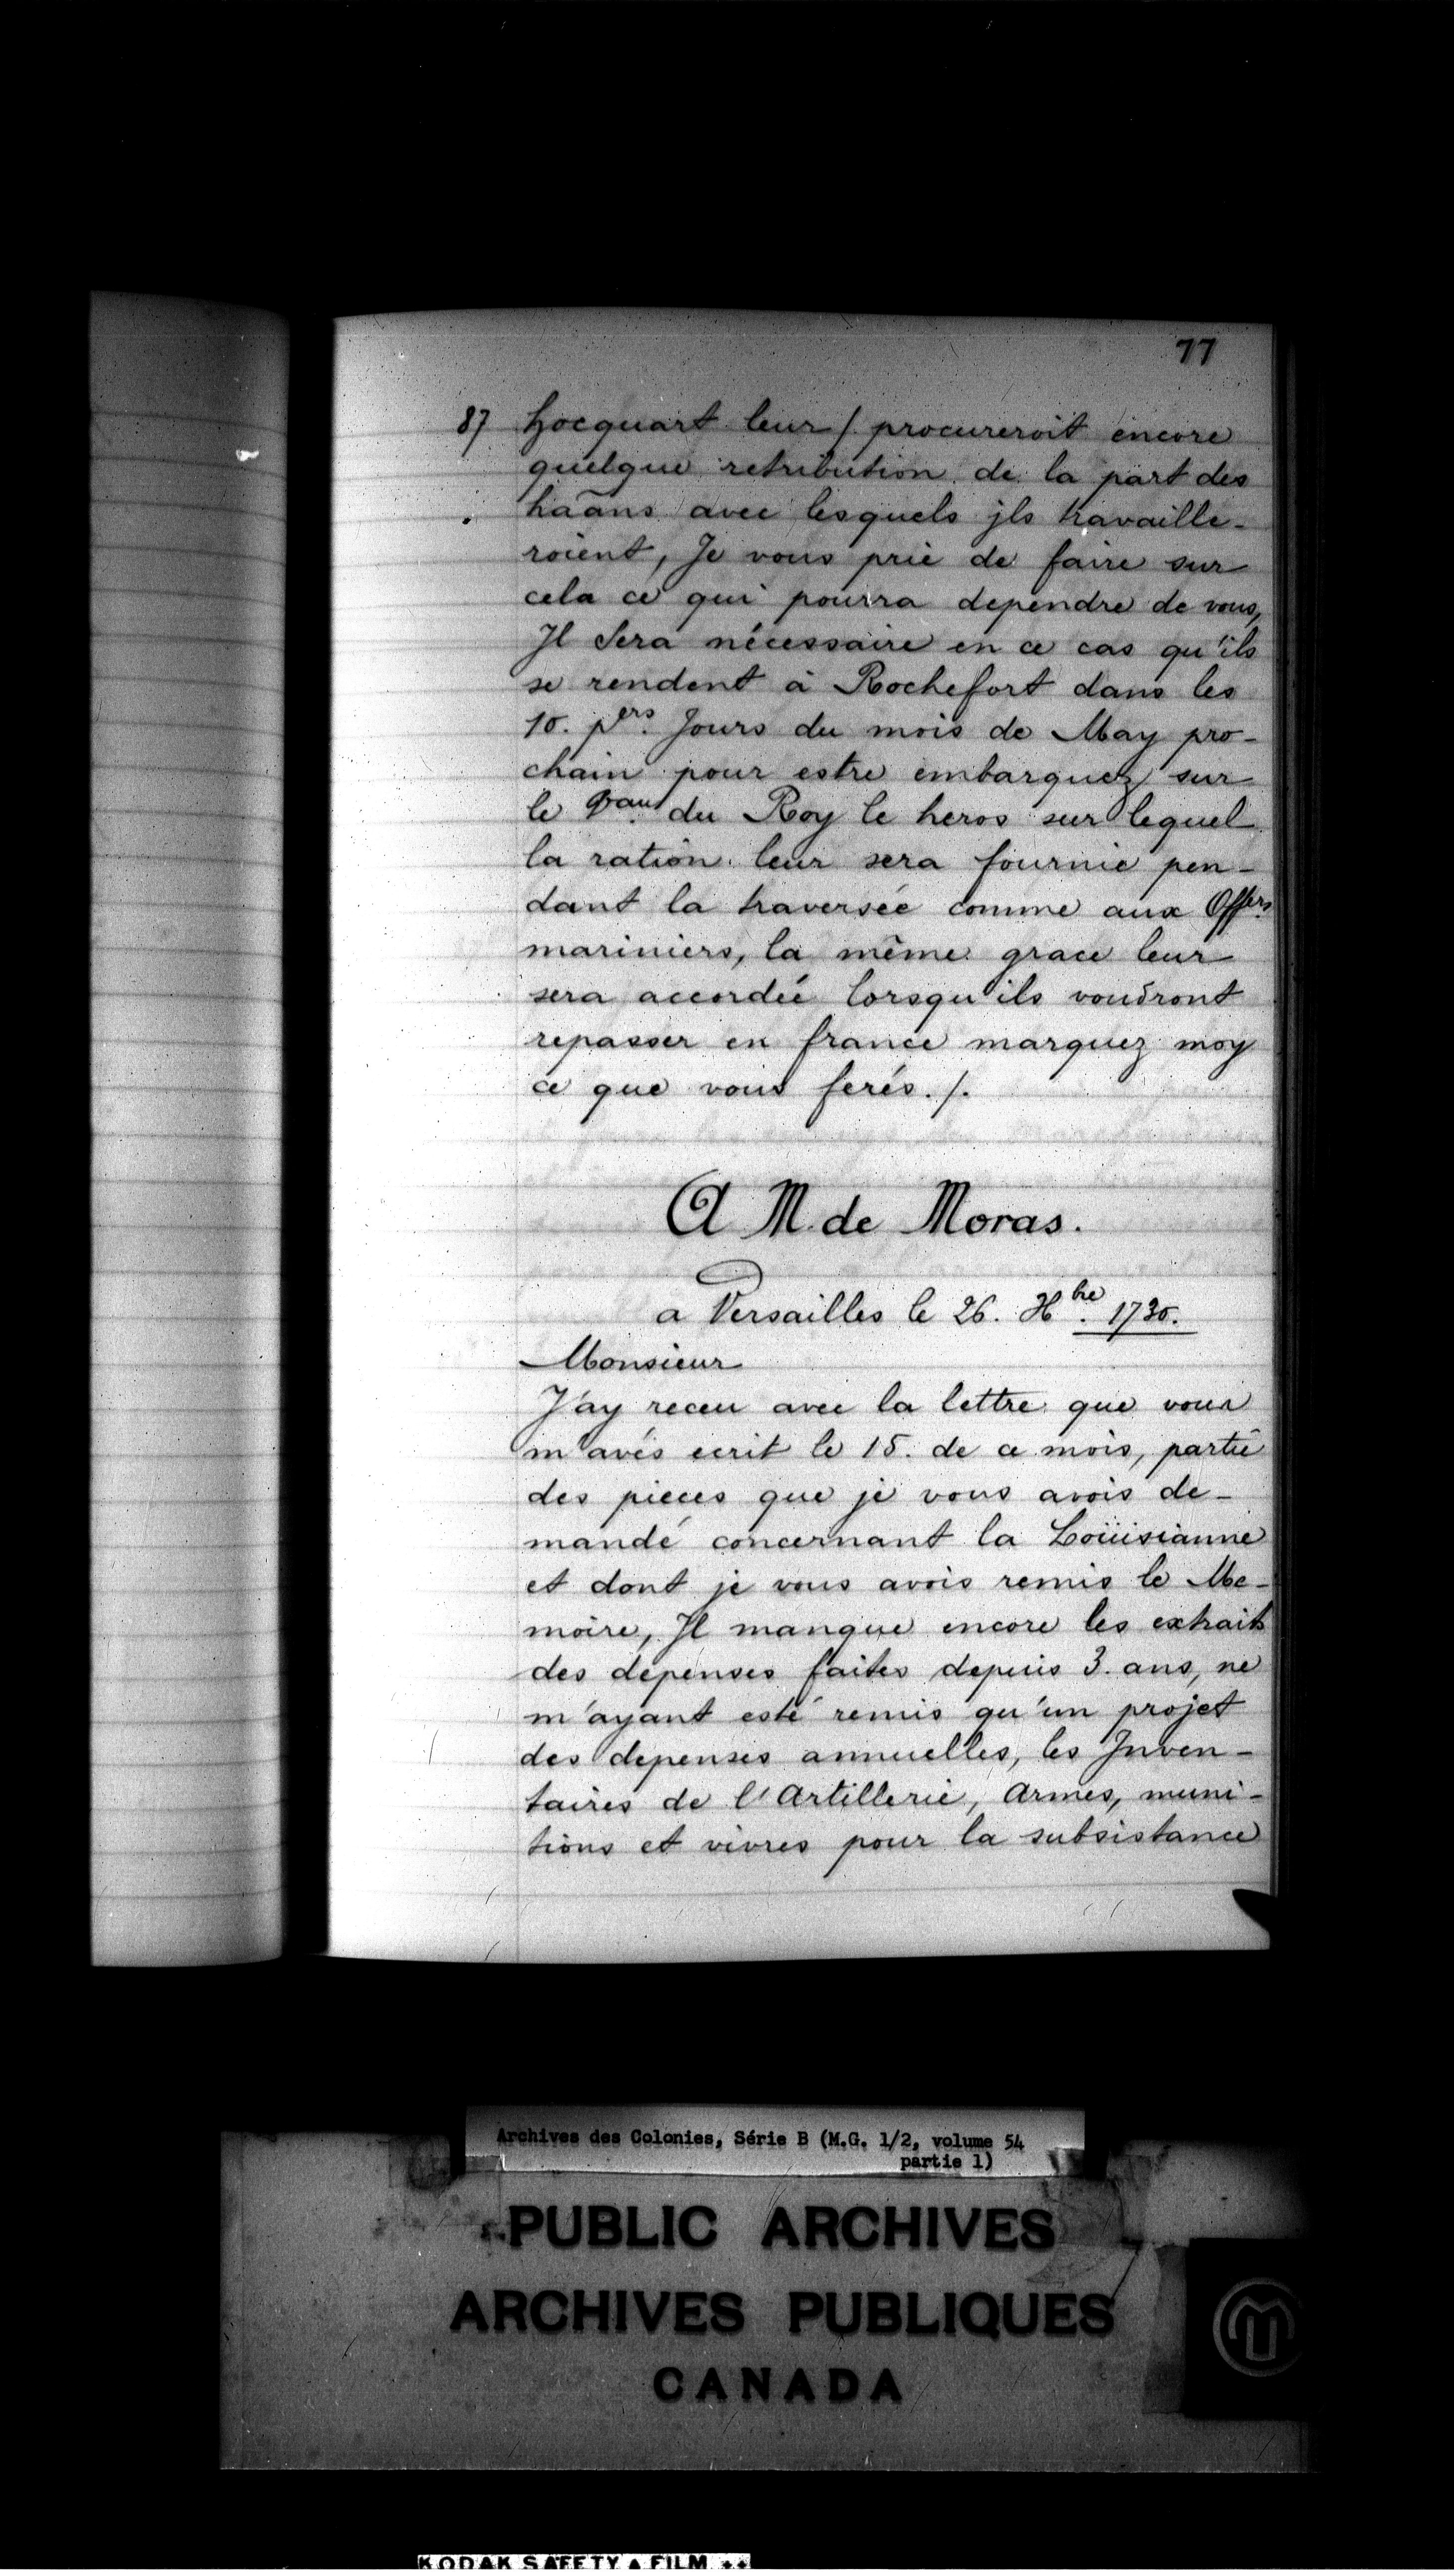 77
87 hocquart leur / procureroit encore
quelque retribution de la part des
hāāns avec lesquels jls travaille-
roient, Je vous prie de faire sur
cela ce qui pourra dependre de vous,
Jl Sera nécessaire en ce cas qu'ils
se rendent à Rochefort dans les
10. pers. Jours du mois de May pro-
chain pour estre embarquez sur
le Vau. du Roy le heros sur lequel
la ration leur sera fournie pen-
dant la traversée comme aux Offers
mariniers, la même grace leur
sera accordée lorsqu'ils voudront
repasser en france marquez moy
ce que vous ferés./.
A M. de Moras.
a Versailles le 26. Xbre. 1730.
Monsieur
J'ay receu avec la lettre que vous
m'avés ecrit le 15. de ce mois, partie
des pieces que je vous avois de-
mandé concernant la Loüisianne
et dont je vous avois remis le Me-
moire, Jl manque encore les extraits
des depenses faites depuis 3. ans, ne
m'ayant esté remis qu'un projet
des depenses annuelles, les Inven-
taires de l'Artillerie, Armes, muni-
tions et vivres pour la subsistance
Archives des Colonies, Série B (M.G. 1/2, volume 54
partie 1)
PUBLIC ARCHIVES
ARCHIVES PUBLIQUES
CANADA
KODAK SAFETY FILM